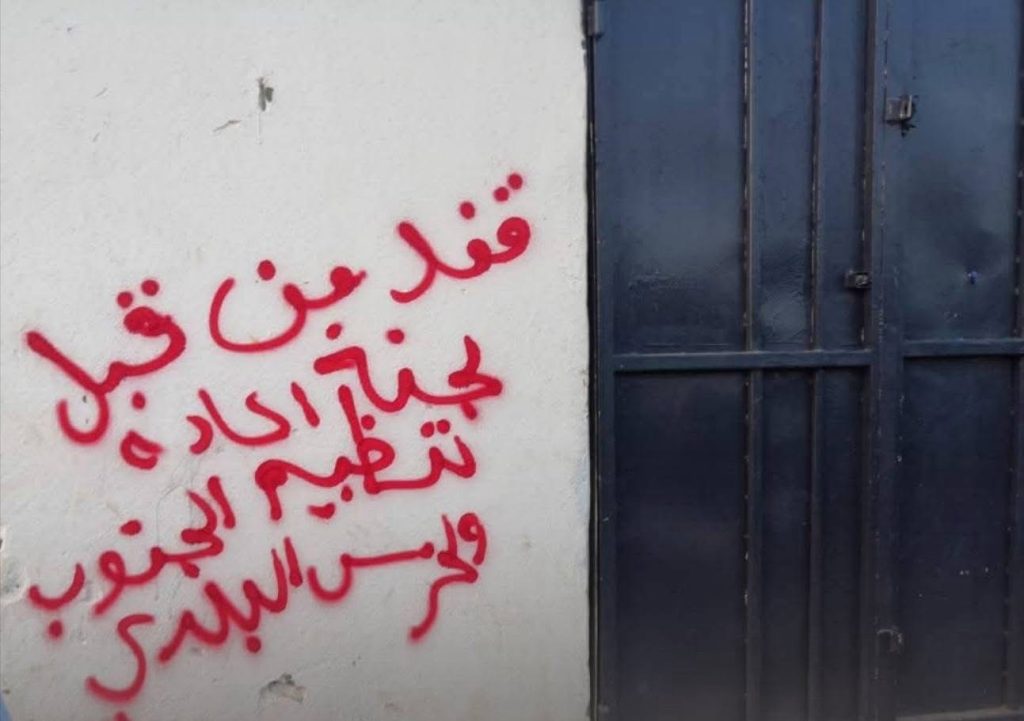 قفل من قبل
لجنة اعادة
تنظيم الجنوب
والحرس البلدي